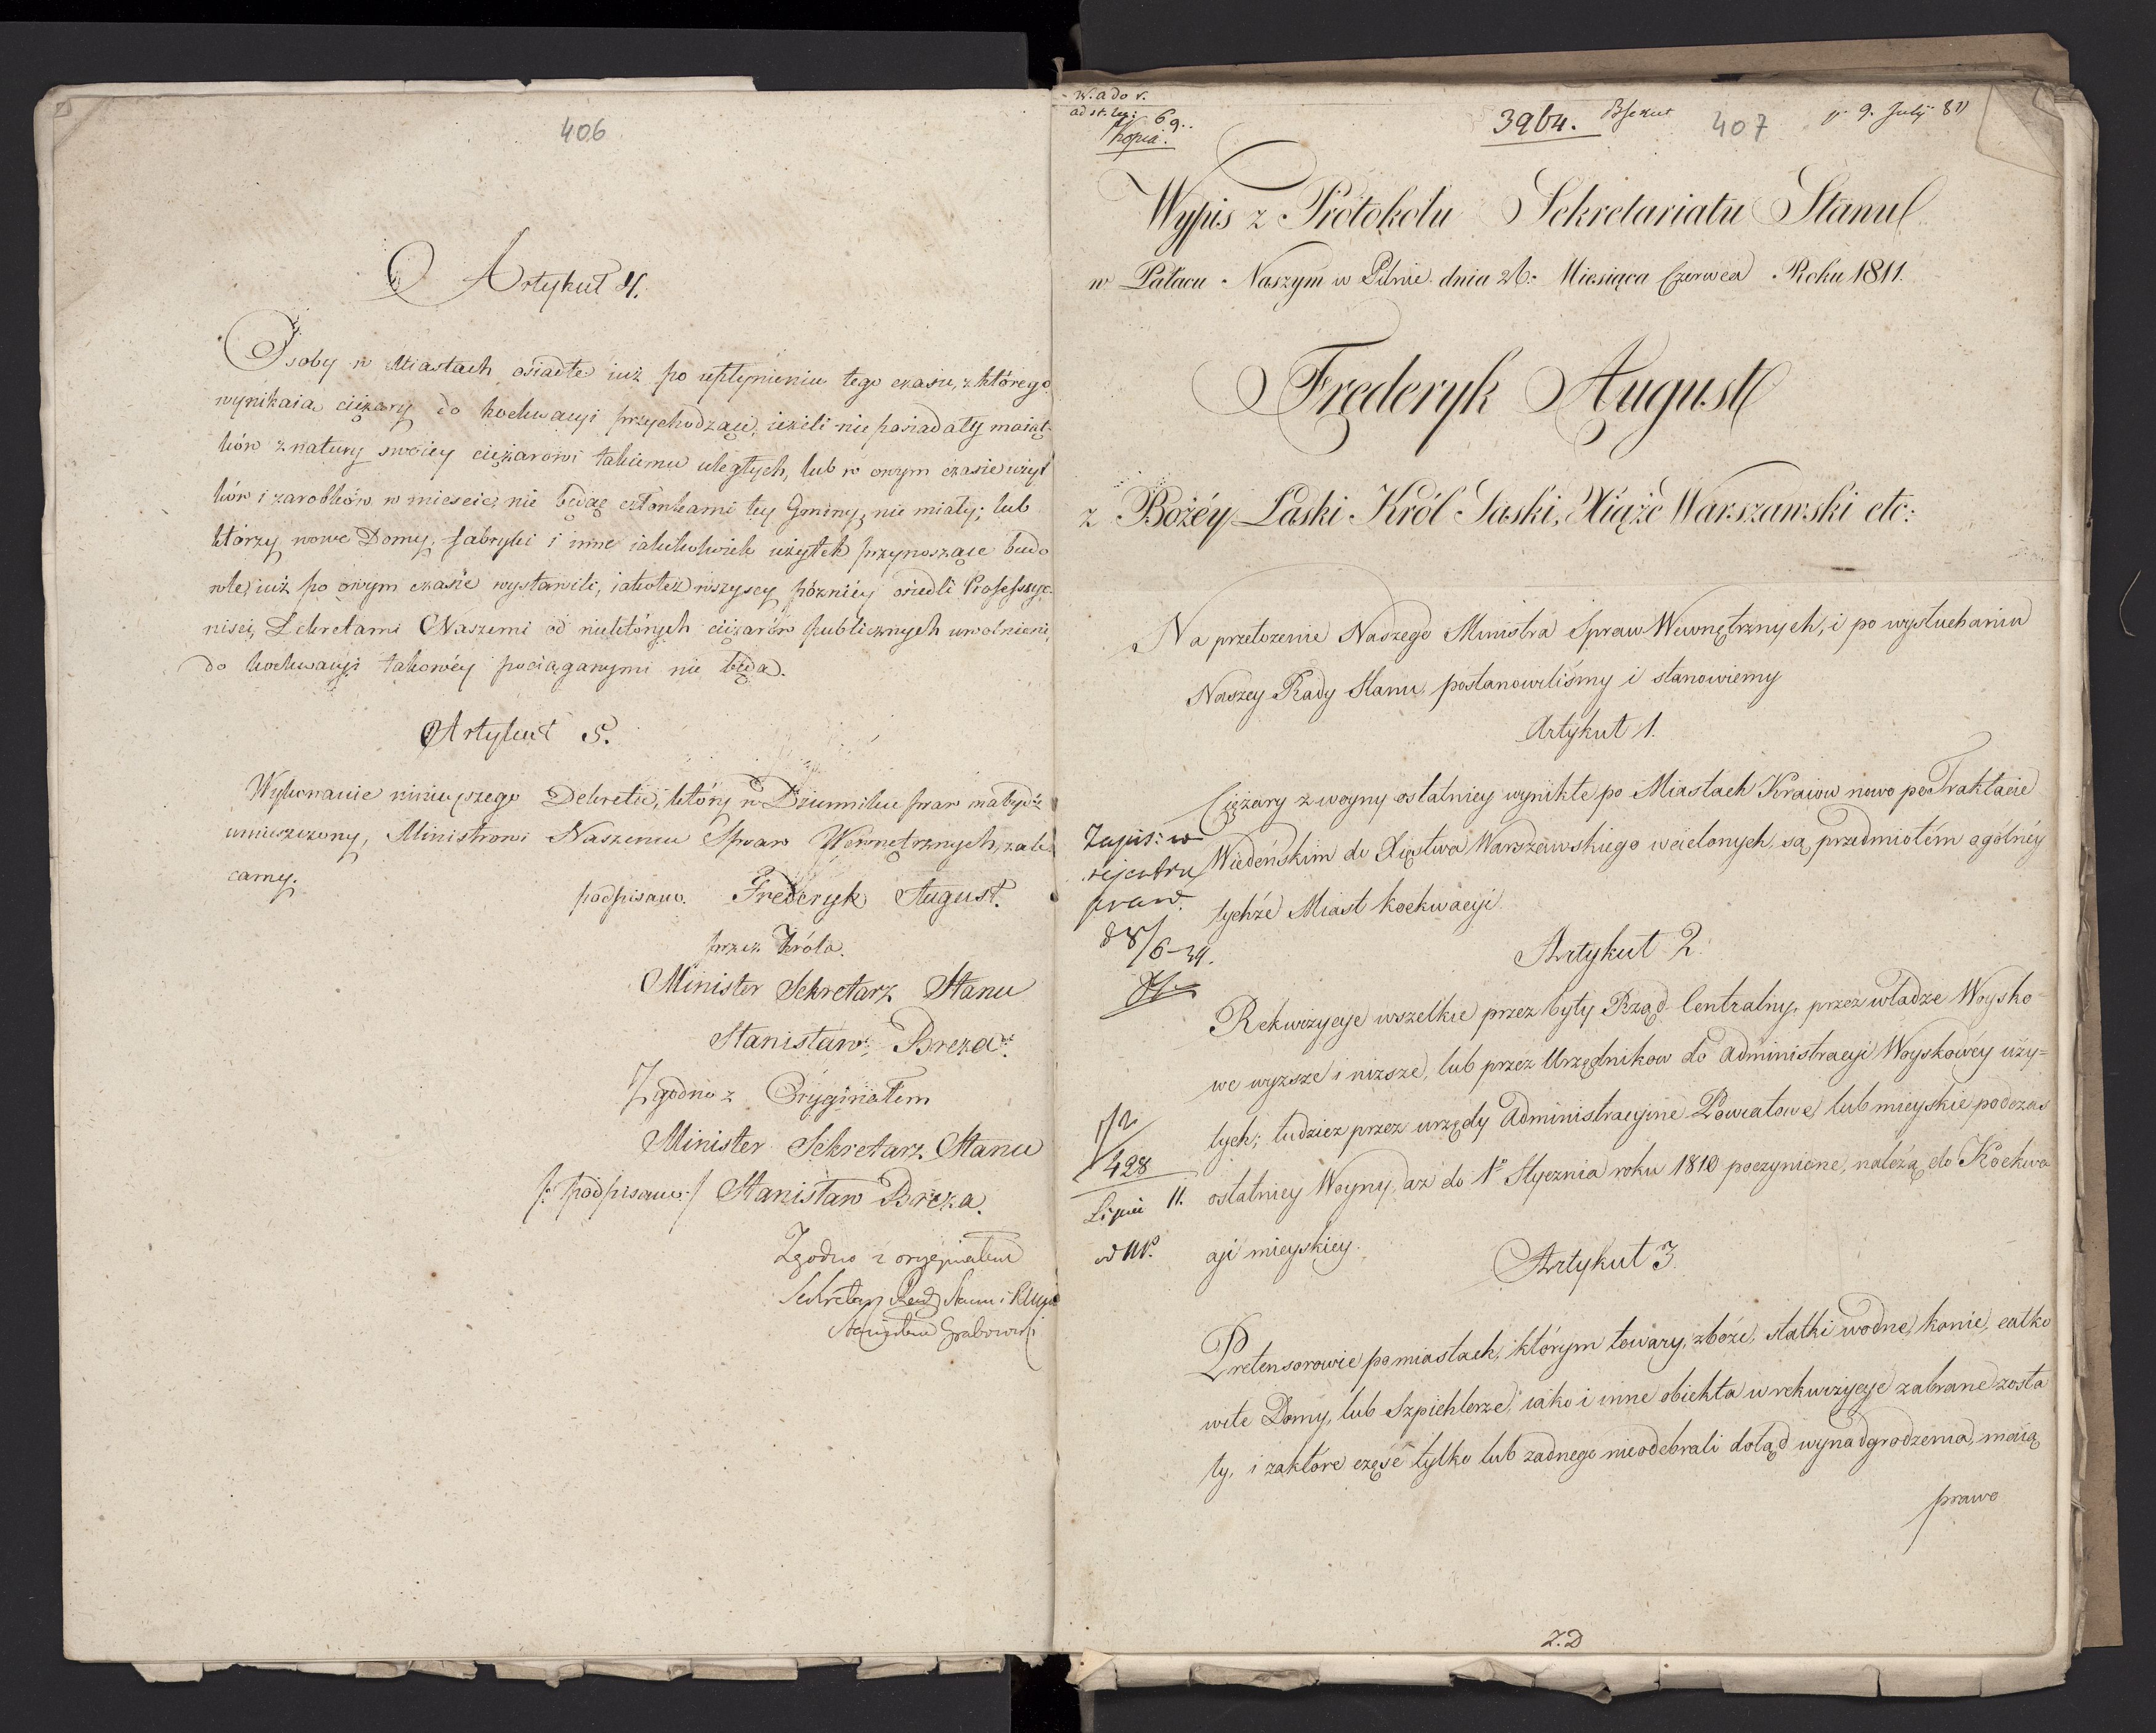 406
Artykuł 4.
Osoby w Miastach osiadłe iuż po upłynieniu tego czasu, z którego
wynikaią ciężary do koekwacyi przychodzące, ieżeli nie posiadały maiąt-
ków z natury swoiey ciężarowi takiemu uległych, lub w owym czasie użyt
ków i zarobków w mieście, nie będąc członkami tey Gminy, nie miały; lub
którzy nowe Domy, fabryki i inne iakikolwiek użytek przynoszące budo
wle, iuż po owym czasie wystawili, iakoteż wszyscy pózniéy osiedli Professyo-
nisci, Dekretami Naszemi od niektórych ciężarów publicznych uwolnieni,
do koekwacyi takowéy pociąganymi nie będą.
Artykuł 5.
Wykonanie ninieyszego Dekretu, który w Dzienniku praw ma bydź
umieszczony, Ministrowi Naszemu Spraw Wewnętrznych, zale
camy.
podpisano. Frederyk August.
przez Króla.
Minister Sekretarz Stanu
Stanisław Breza.
Zgodno z Oryginałem
Minister Sekretarz Stanu
/: podpisano :/ Stanisław Breza.
Zgodno z oryginałem
Sekretarz Rady Stanu i
Stanisław Grabowski
W. a do v.
ad st. leg: 69..
Kopia.
3964.
407
p. 9. July 811
Wypis z Protokołu Sekretariatu Stanu
w Pałacu Naszym w Pilnie dnia 26. Miesiąca Czerwca Roku 1811.
Frederyk August
z Bożéy Łaski Król Saski, Xiąże Warszawski etc:
Na przełożenie Naszego Ministra Spraw Wewnętrznych, i po wysłuchaniu
Naszey Rady Stanu, postanowiliśmy i stanowiemy
Artykuł 1.
Ciężary z woyny ostatniey wynikłe po Miastach Kraiow nowo po Traktacie
Wiedeńskim do Xięstwa Warszawskiego wcielonych, są przedmiotém ogólnéy
tychże Miast koekwacyi.
Zapis: w
rejestru
praw.
d 8/6-39.
Artykuł 2.
Rekwizycye wszelkie przez były Rząd Centralny, przez władze Woysko-
we wyższe i niższe, lub przez Urzędnikow do administracyi Woyskowéy uży=
tych; tudzież przez urzędy administracyine Powiatowe lub mieyskie podczas
ostatniey Woyny, aż do 1º Stycznia roku 1810 poczynione, należą do Koekwa
cyi mieyskiey.
428
Lipca 11.
Artykuł 3.
Pretensorowie po miastach, którym towary, zboże, statki wodne, konie, całko
wite Domy, lub Szpichlerze, iako i inne obiekta w rekwizycye zabrane zosta
ły, i za które częsć tylko lub żadnego nieodebrali dotąd wynadgrodzenia, maią
prawo
Z.D